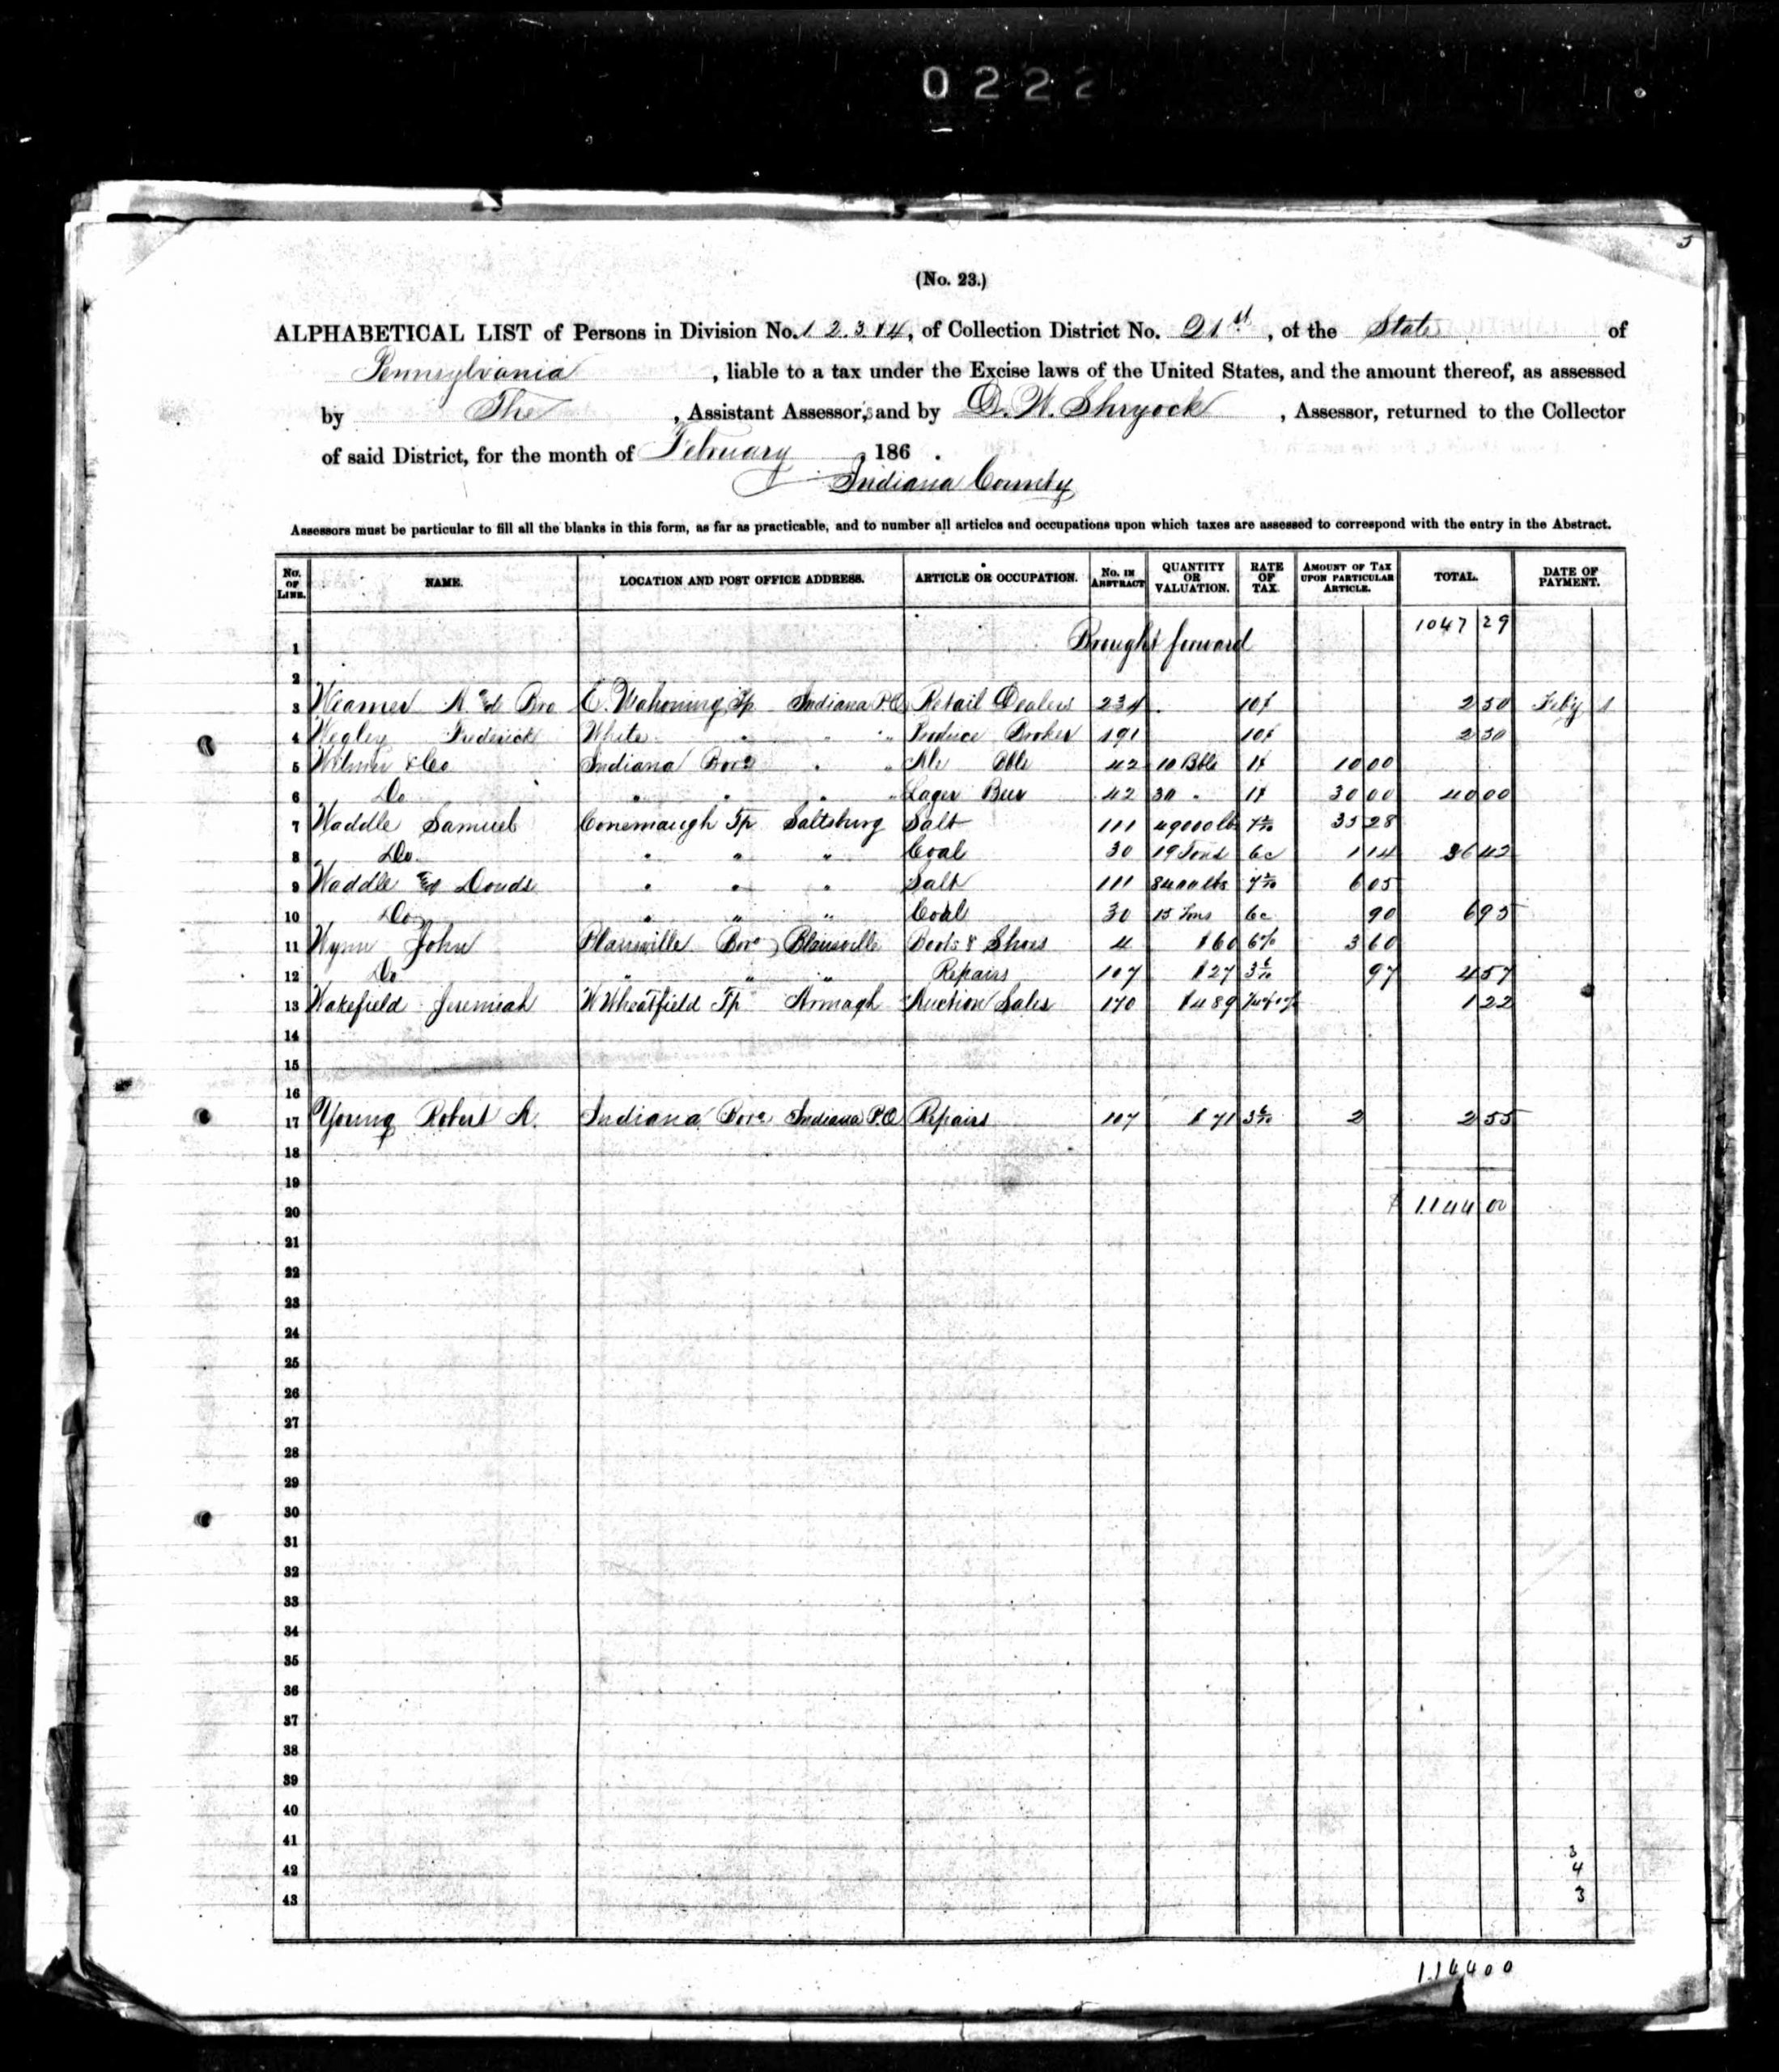 0222
5
(No. 23.)
ALPHABETICAL LIST of Persons in Division No. 1 2. 3 & 4, of Collection District No. 21st, of the State of
Pennsylvania, liable to a tax under the Excise laws of the United States, and the amount thereof, as assessed
by The, Assistant Assessors, and by D. W. Shryock, Assessor, returned to the Collector
of said District, for the month of February, 186 .
Indiana County
Assessors must be particular to fill all the blanks in this form, as far as practicable, and to number all articles and occupations upon which taxes are assessed to correspond with the entry in the Abstract.
No. OF LINE. NAME. LOCATION AND POST OFFICE ADDRESS. ARTICLE OR OCCUPATION. No. IN ABSTRACT QUANTITY OR VALUATION. RATE OF TAX. AMOUNT OF TAX UPON PARTICULAR ARTICLE. TOTAL. DATE OF PAYMENT.
1 Brought forward 1047 29
2
3 Weamer A. & Bro E. Mahoning Tp Indiana P.O Retail Dealers 234 10 2 50 Feby 1
4 Wegley Frederick White " " " Produce Broker 191 10 2 50
5 & Co Indiana Boro " " Ale 42 10 Bbls 1 10 00
6 Do " " " " Lager Beer 42 30 " 1 30 00 40 00
7 Waddle Samuel Conemaugh Tp Saltsburg Salt 111 49000 lb 35 28
8 Do. " " " Coal 30 19 Tons 6c 1 14 36 42
9 Waddle & Douds " " " Salt 111 8400 lbs 6 05
10 Do " " " Coal 30 15 Tons 6c 90 6 95
11 Wynn John Blairsville Boro Blairsville Boots & Shoes 4 $60 6% 3 60
12 Do " " " Repairs 107 $27 3 6/10 97 4 57
13 Wakefield Jeremiah W Wheatfield Tp Armagh Auction Sales 170 $489 1 22
14
15
16
17 Young Robert A. Indiana Boro Indiana P.O Repairs 107 $71 3 6/10 2 2 55
18
19
20 $ 1144 00
21
22
23
24
25
26
27
28
29
30
31
32
33
34
35
36
37
38
39
40
41 3
42 4
43 3
114400